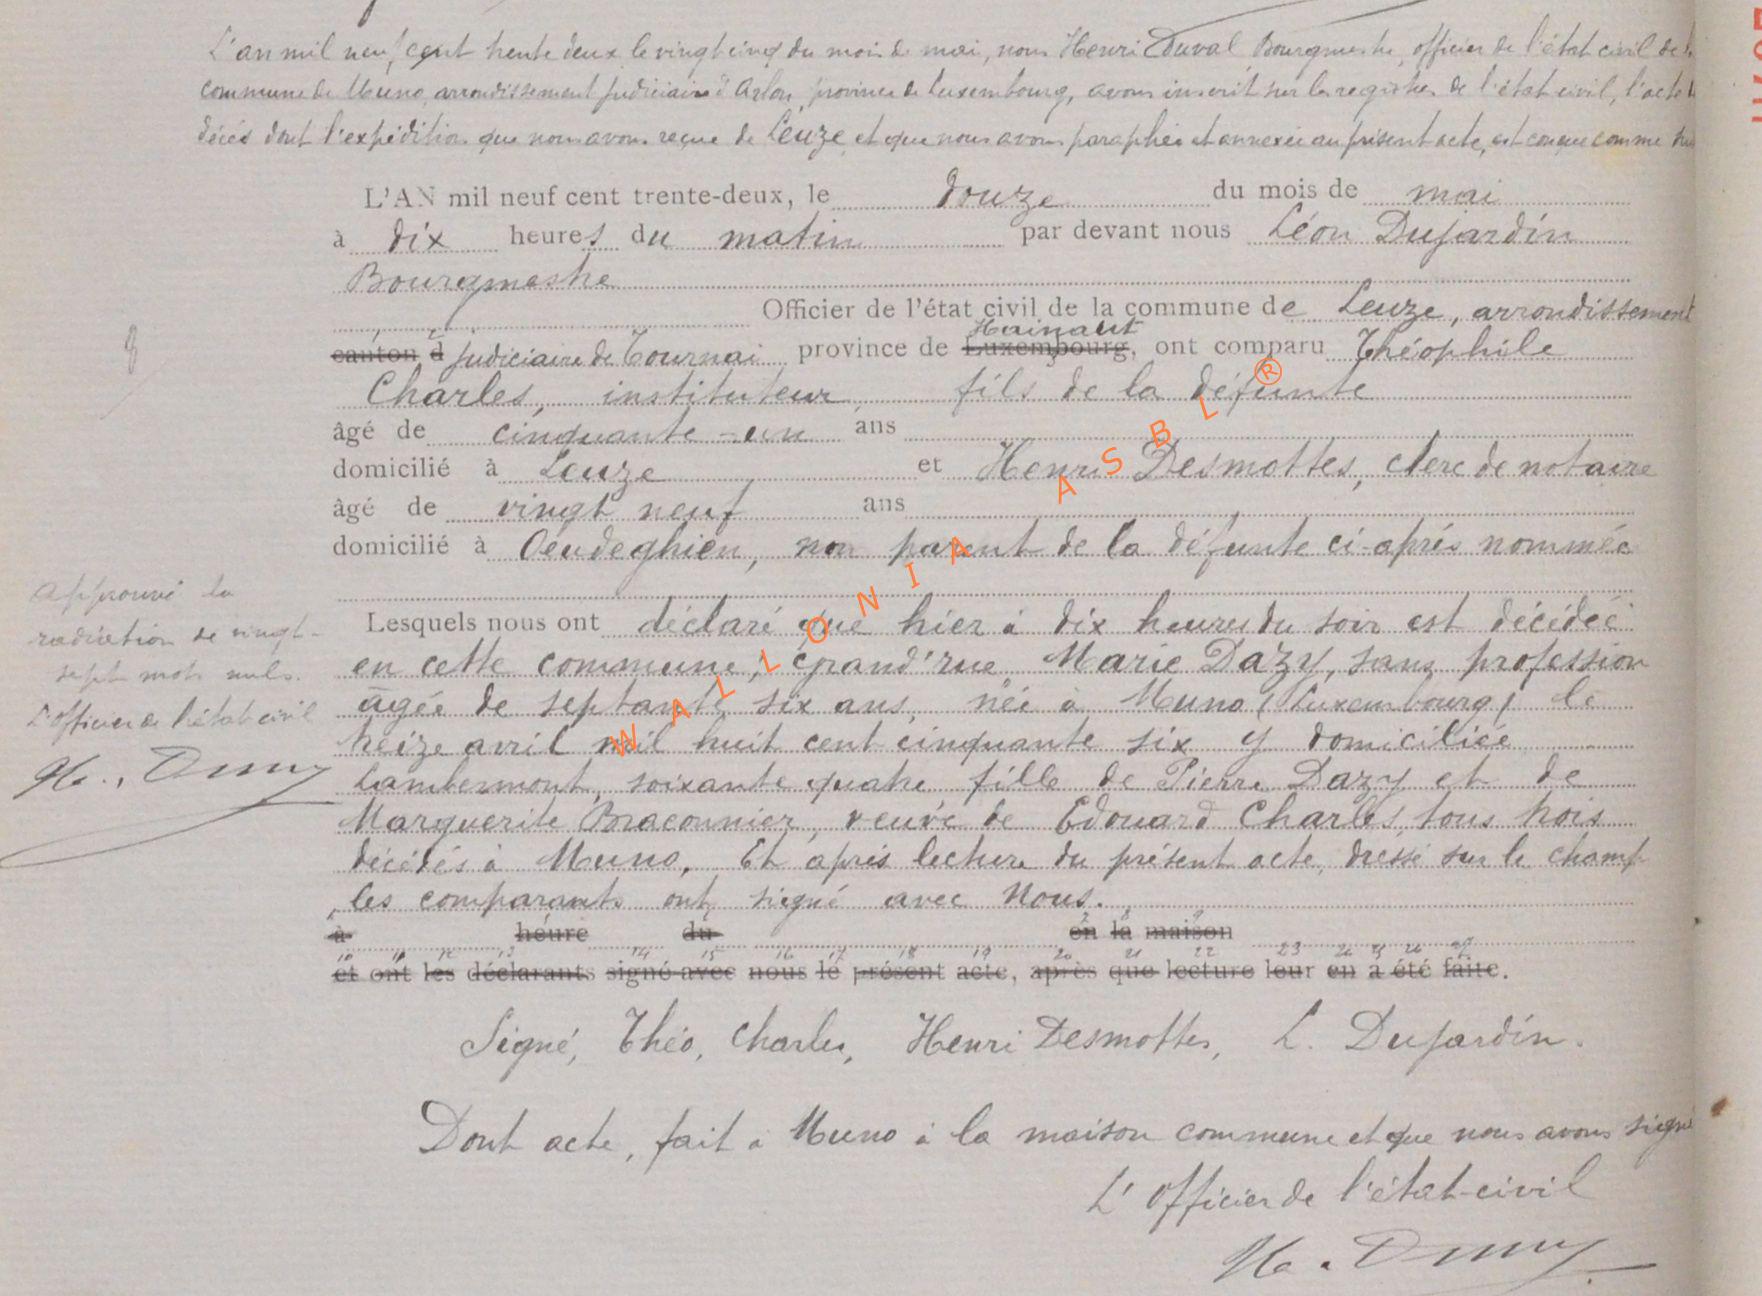 L'an mil neuf cent trente deux le vingt cinq du mois de mai, nous Henri Duval Bourgmestre, officier de l'état civil de la
commune de Muno, arrondissement judiciaire d'Arlon, province de Luxembourg, avons inscrit sur les registres de l'état civil, l'acte de
décès dont l'expédition que nous avons reçue de Leuze et que nous avons paraphée et annexée au présent acte, est conçue comme
L'AN mil neuf cent trente-deux, le douze du mois de mai
à dix heures du matin par devant nous Léon Dujardin
Bourgmestre
Officier de l'état civil de la commune de Leuze, arrondissement
Hainaut
canton d judiciaire de Tournai province de Luxembourg, ont comparu Théophile
Charles, instituteur, fils de la défunte
âgé de cinquante-un ans
domicilié à Leuze et Henri Desmottes, clerc de notaire
âgé de vingt neuf ans
domicilié à Oeudeghien, non parent de la défunte ci-après nommée
Lesquels nous ont déclaré que hier à dix heures du soir est décédée
en cette commune, Grand'rue Marie Dazy, sans profession
âgée de septante six ans, née à Muno (Luxembourg) le
treize avril mil huit cent cinquante six y domiciliée
Lambermont, soixante quatre, fille de Pierre Dazy et de
Marguerite Braconnier, veuve de Edouard Charles, tous trois
décédés à Muno. Et après lecture du présent acte, dressé sur le champ
les comparants ont signé avec Nous.
à heure du en la maison
10 11 12 13 14 15 16 17 18 19 20 21 22 23 24 25 26 27
et ont les déclarants signé avec nous le présent acte, après que lecture leur en a été faite.
Signé, Théo, Charles, Henri Desmottes, L. Dujardin.
Dont acte, fait à Muno à la maison commune et que nous avons signé
L'Officier de l'état-civil
8
Approuvé la
radiation de vingt-
sept mots nuls.
L'officier de l'état civil
WALLONIA ASBL ®